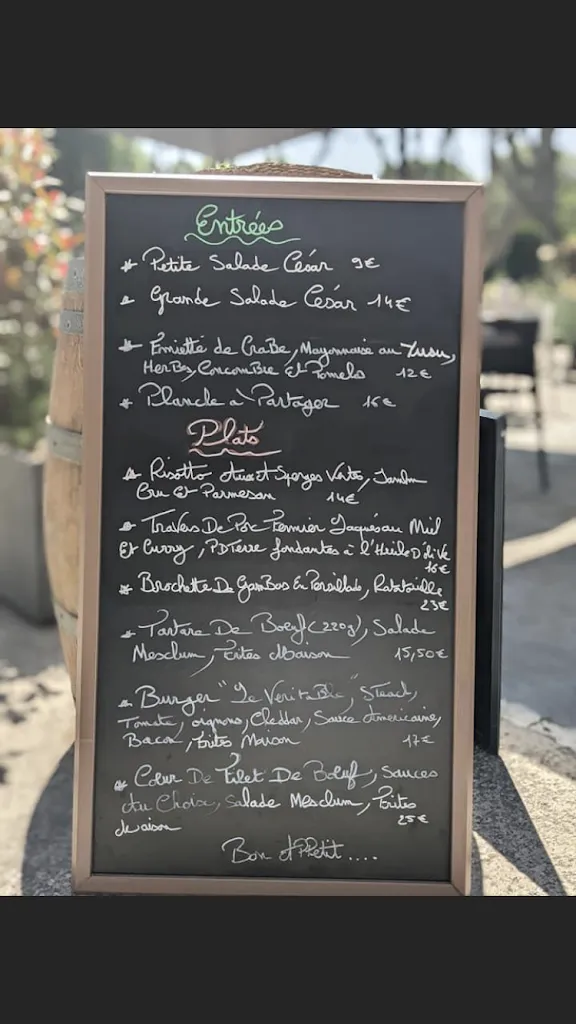 Entrées
* Petite Salade César 9€
* Grande Salade César 14€
* Emietté de Crabe, Mayonnaise au Yuzu,
Herbes, Concombre Et Pomelo 12€
* Planche à Partager 16€
Plats
* Risotto Aux Asperges Vertes, Jambon
Cru Et Parmesan 14€
* Travers De Porc Fermier Laqué au Miel
Et Curry, PDTerre fondantes à l'Huile D'olive
16€
* Brochette De Gambas En Persillade, Ratatouille
23€
* Tartare De Boeuf (220g), Salade
Mesclum, Frites Maison 15,50€
* Burger "Le Veritable", Steack,
Tomate, oignons, Cheddar, Sauce Américaine,
Bacon, Frites Maison 17€
* Cœur De Filet De Bœuf, Sauces
Au Choix, Salade Mesclum, Frites
Maison 25€
Bon Appétit....